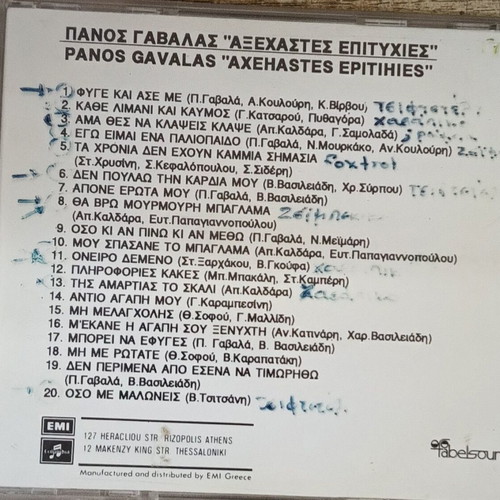 ΠΑΝΟΣ ΓΑΒΑΛΑΣ "ΑΞΕΧΑΣΤΕΣ ΕΠΙΤΥΧΙΕΣ"
PANOS GAVALAS "AXEHASTES EPITIHIES"
1. ΦΥΓΕ ΚΑΙ ΑΣΕ ΜΕ (Π.Γαβαλά, Α.Κουλούρη, Κ.Βίρβου)
2. ΚΑΘΕ ΛΙΜΑΝΙ ΚΑΙ ΚΑΥΜΟΣ (Γ.Κατσαρού, Πυθαγόρα)
3. ΑΜΑ ΘΕΣ ΝΑ ΚΛΑΨΕΙΣ ΚΛΑΨΕ (Απ.Καλδάρα, Γ.Σαμολαδά)
4. ΕΓΩ ΕΙΜΑΙ ΕΝΑ ΠΑΛΙΟΠΑΙΔΟ (Π.Γαβαλά, Ν.Μουρκάκο, Αν.Κουλούρη)
5. ΤΑ ΧΡΟΝΙΑ ΔΕΝ ΕΧΟΥΝ ΚΑΜΜΙΑ ΣΗΜΑΣΙΑ Foxtrot
(Στ.Χρυσίνη, Σ.Κεφαλόπουλου, Σ.Σιδέρη)
6. ΔΕΝ ΠΟΥΛΑΩ ΤΗΝ ΚΑΡΔΙΑ ΜΟΥ (Β.Βασιλειάδη, Χρ.Σύρπου)
7. ΑΠΟΝΕ ΕΡΩΤΑ ΜΟΥ (Π.Γαβαλά, Β.Βασιλειάδη)
8. ΘΑ ΒΡΩ ΜΟΥΡΜΟΥΡΗ ΜΠΑΓΛΑΜΑ
(Απ.Καλδάρα, Ευτ.Παπαγιαννοπούλου)
9. ΟΣΟ ΚΙ ΑΝ ΠΙΝΩ ΚΙ ΑΝ ΜΕΘΩ (Π.Γαβαλά, Ν.Μεϊμάρη)
10. ΜΟΥ ΣΠΑΣΑΝΕ ΤΟ ΜΠΑΓΛΑΜΑ (Απ.Καλδάρα, Ευτ.Παπαγιαννοπούλου)
11. ΟΝΕΙΡΟ ΔΕΜΕΝΟ (Στ.Ξαρχάκου, Β.Γκούφα)
12. ΠΛΗΡΟΦΟΡΙΕΣ ΚΑΚΕΣ (Μπ.Μπακάλη, Στ.Καμπέρη)
13. ΤΗΣ ΑΜΑΡΤΙΑΣ ΤΟ ΣΚΑΛΙ (Απ.Καλδάρα)
14. ΑΝΤΙΟ ΑΓΑΠΗ ΜΟΥ (Γ.Καραμπεσίνη)
15. ΜΗ ΜΕΛΑΓΧΟΛΗΣ (Θ.Σοφού, Γ.Μαλλίδη)
16. Μ'ΕΚΑΝΕ Η ΑΓΑΠΗ ΣΟΥ ΞΕΝΥΧΤΗ (Αν.Κατινάρη, Χαρ.Βασιλειάδη)
17. ΜΠΟΡΕΙ ΝΑ ΕΦΥΓΕΣ (Π. Γαβαλά, Β. Βασιλειάδη)
18. ΜΗ ΜΕ ΡΩΤΑΤΕ (Θ.Σοφού, Β.Καραπατάκη)
19. ΔΕΝ ΠΕΡΙΜΕΝΑ ΑΠΟ ΕΣΕΝΑ ΝΑ ΤΙΜΩΡΗΘΩ
(Π.Γαβαλά, Β.Βασιλειάδη)
20. ΟΣΟ ΜΕ ΜΑΛΩΝΕΙΣ (Β.Τσιτσάνη)
EMI
127 HERACLIOU STR RIZOPOLIS ATHENS
12 MAKENZY KING STR THESSALONIKI
Manufactured and distributed by EMI Greece